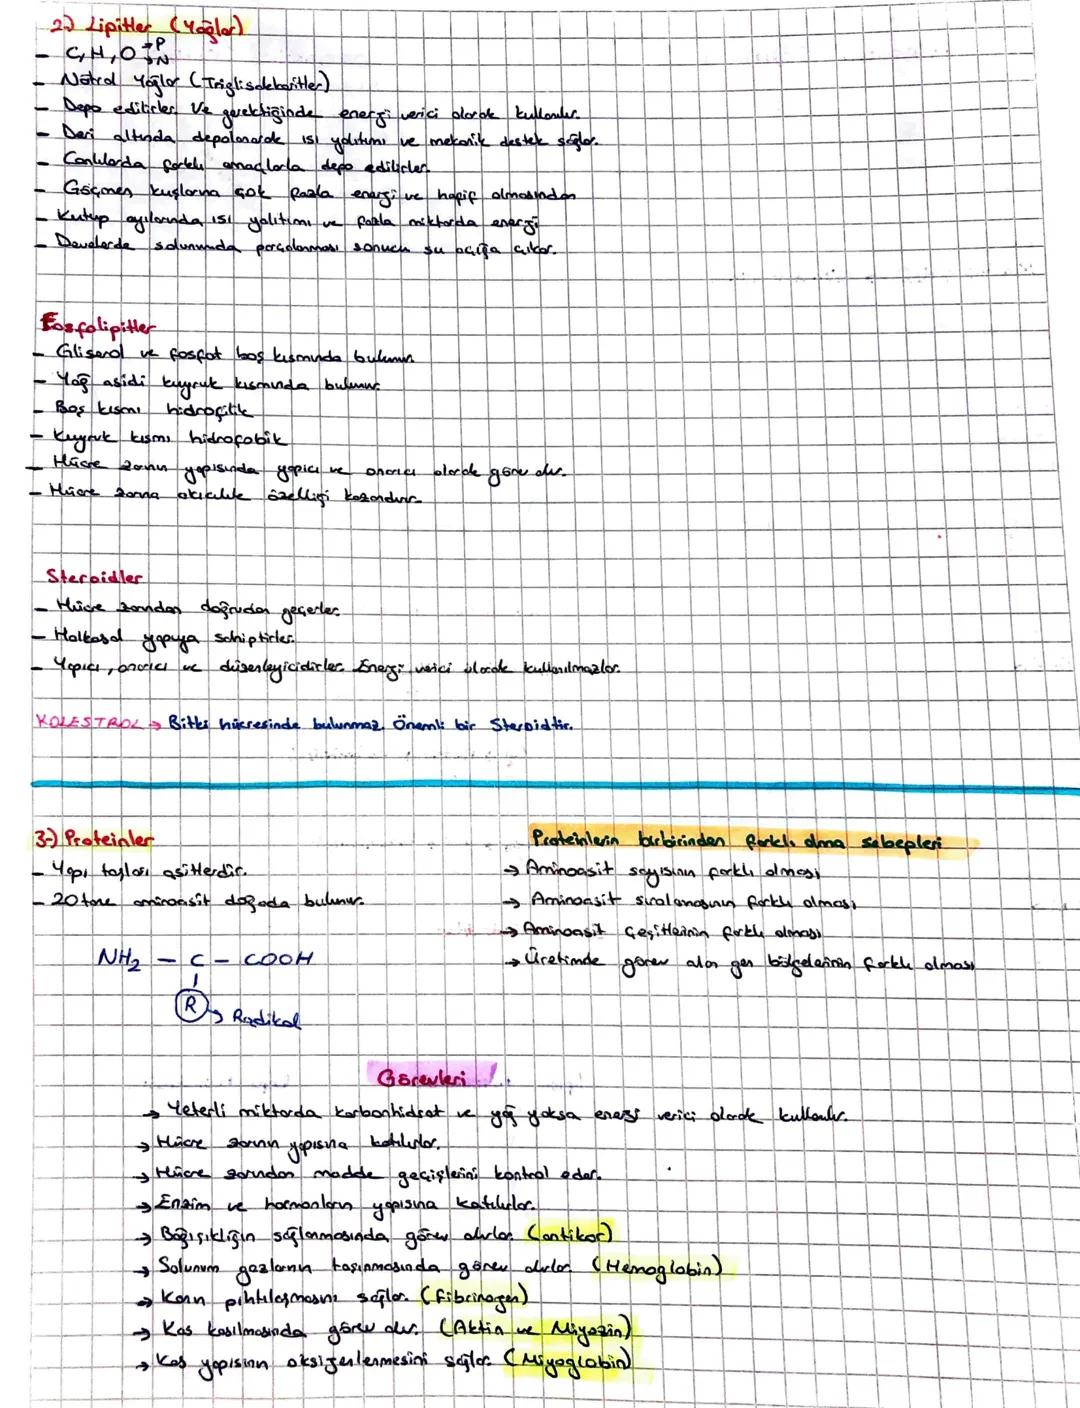 2-) Lipitler (Yağlar)
- C, H, O → P
→ N
- Nötral Yağlar (Trigliso)
- Depo edilirler. Ve gerektiğinde enerji verici olarak kullanılır.
- Deri altında depolanarak ısı yalıtımı ve mekanik destek sağlar.
- Canlılarda farklı amaçlarla depo edilirler.
- Göçmen kuşlarına çok fazla enerji ve hafif olmasından
- Kutup ayılarında ısı yalıtımı ve fazla miktarda enerji
- Develerde solunumda parçalanması sonucu su açığa çıkar.
Fosfolipitler
- Gliserol ve fosfat baş kısmında bulunur.
- Yağ asidi kuyruk kısmında bulunur.
- Baş kısmı hidrofilik
- Kuyruk kısmı hidrofobik
- Hücre zarının yapısında yapıcı ve onarıcı olarak görev alır.
- Hücre zarına akıcılık özelliği kazandırır.
Steroidler
- Hücre zarından doğrudan geçerler.
- Halkasal yapıya sahiptirler.
- Yapıcı, onarıcı ve düzenleyicidirler. Enerji verici olarak kullanılmazlar.
KOLESTROL → Bitki hücresinde bulunmaz. Önemli bir Steroidtir.
3-) Proteinler
- Yapı taşları asitlerdir.
- 20 tane aminoasit doğada bulunur.
NH2 - C - COOH
R → Radikal
Proteinlerin birbirinden farklı olma sebepleri
→ Aminoasit sayısının farklı olması
→ Aminoasit sıralamasının farklı olması
→ Aminoasit çeşitlerinin farklı olması
→ Üretimde görev alan gen bölgelerinin farklı olması
Görevleri
→ Yeterli miktarda karbonhidrat ve yağ yoksa enerji verici olarak kullanılır.
→ Hücre zarının yapısına katılırlar.
→ Hücre zarından madde geçişlerini kontrol eder.
→ Enzim ve hormonların yapısına katılırlar.
→ Bağışıklığın sağlanmasında görev alırlar. (antikor)
→ Solunum gazlarının taşınmasında görev alırlar. (Hemoglobin)
→ Kanın pıhtılaşmasını sağlar. (Fibrinojen)
→ Kas kasılmasında görev alır. (Aktin ve Miyozin)
→ Kas yapısının oksijenlenmesini sağlar. (Miyoglobin)